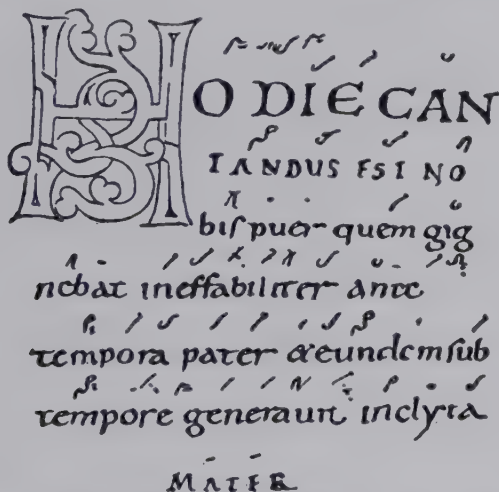 HODIE CAN
TANDUS EST NO
bis puer quem gig
nebat ineffabiliter ante
tempora pater & eundem sub
tempore generauit inclyta
MATER